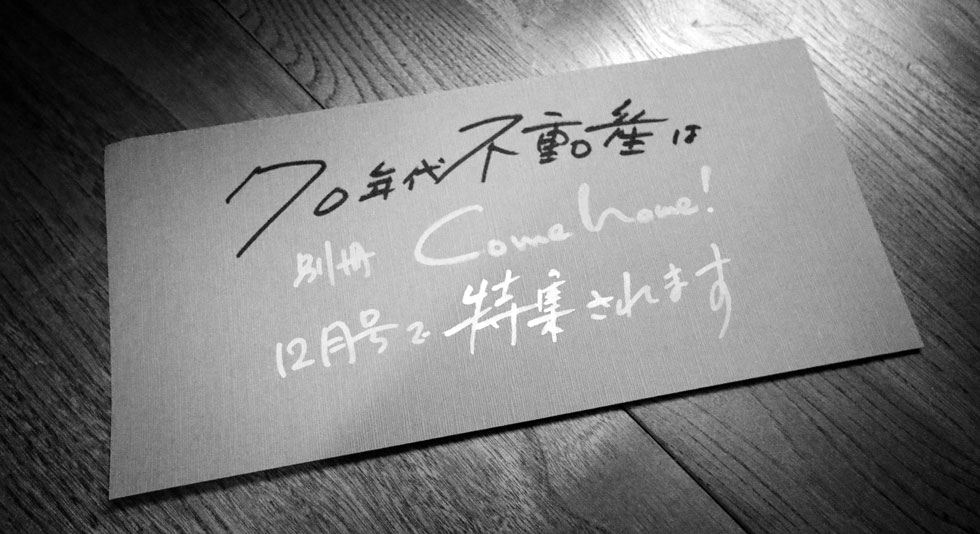 70年代不動産は
別冊 Come home!
12月号で特集されます